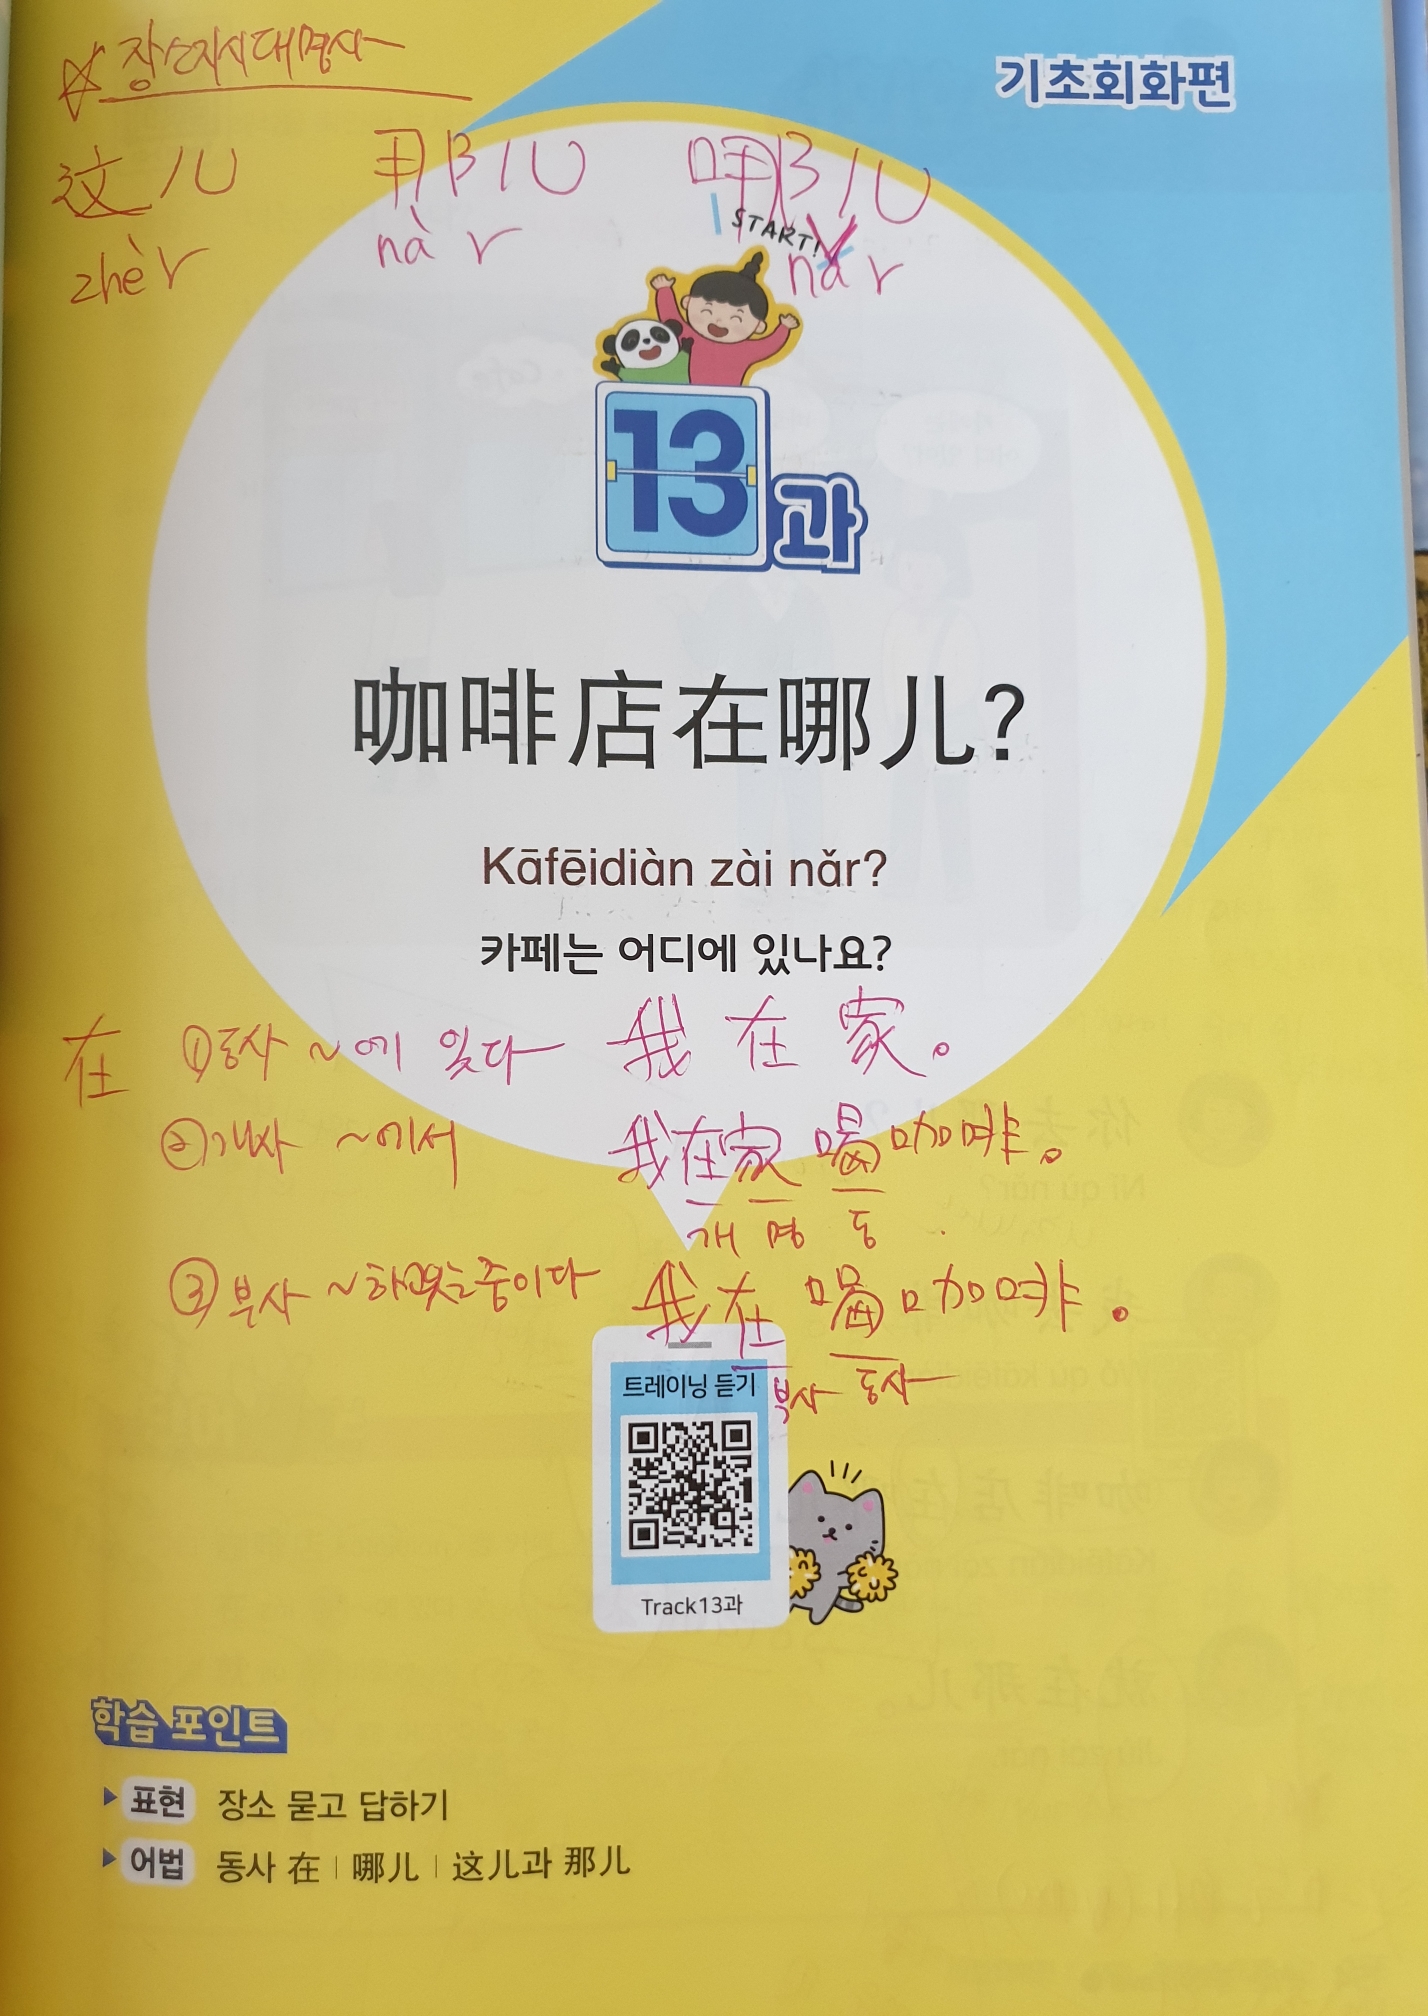 ☆ 장소지시대명사
기초회화편
这儿 那儿 哪儿
zhèr nàr nǎr
START!
13과
咖啡店在哪儿?
Kāfēidiàn zài nǎr?
카페는 어디에 있나요?
在 ①동사 ~에 있다 我 在 家。
②개사 ~에서 我在家 喝咖啡。
개 명 동
③부사 ~하고있는중이다 我在 喝咖啡。
부사 동사
트레이닝 듣기
Track13과
학습 포인트
표현 장소 묻고 답하기
어법 동사 在 | 哪儿 | 这儿과 那儿